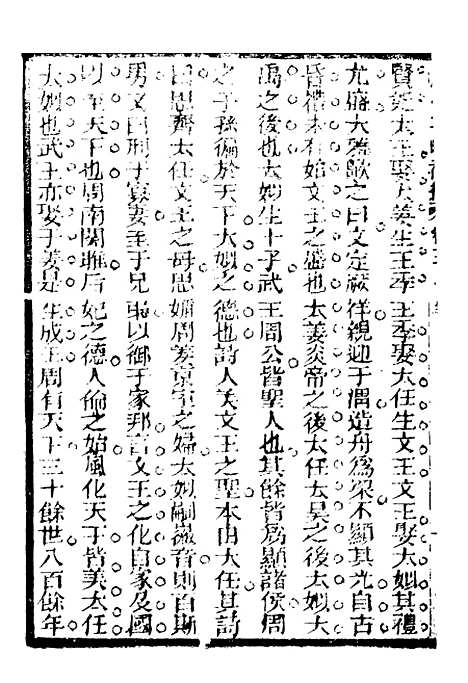 賢義太王娶太姜生王季王季娶太任生文王文王娶大姒其禮
尤盛大雅歌之曰文定厥祥親迎于渭造舟爲梁不顯其光自古
昏禮未有如文王之盛也太姜炎帝之後太任太昊之後太姒大
禹之後也太姒生十子武王周公皆聖人也其餘皆爲顯諸侯周
之子孫徧於天下大姒之德也詩人美文王之聖本由大任其詩
曰思齊太任文王之母思媚周姜京室之婦太姒嗣徽音則百斯
男又曰刑于寡妻至于兄弟以御于家邦言文王之化自家及國
以至天下也周南關雎后妃之德人倫之始風化天下皆美太任
大姒也武王亦娶于姜是生成王周有天下三十餘世八百餘年